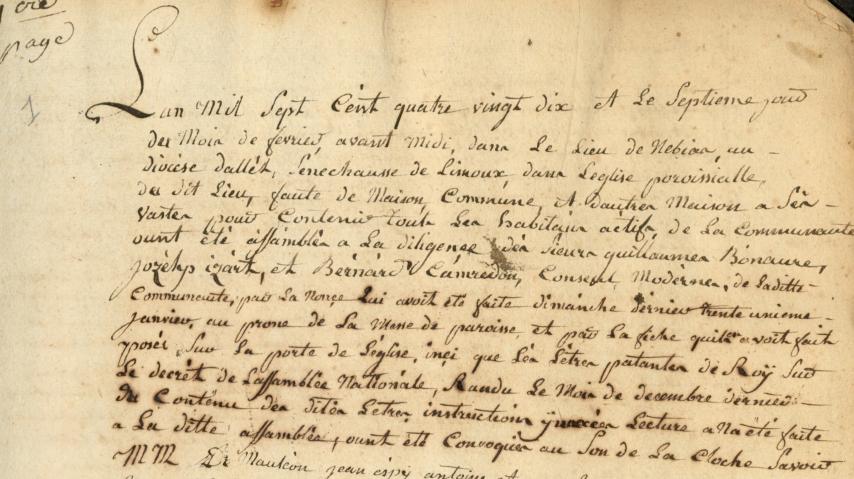 1 ere
page
1
Lan Mil Sept Cent quatre vingt dix et Le Septieme jour
du Mois de fevrier avant Midi, dans Le Lieu de Nebias, au -
diocese dallét, Senechausse de Limoux dans Leglise poroissialle,
du dit Lieu, faute de Maison Commune, et dautres Maison a Séz -
vastes pour Contenir tout Les habitans actifs de La Communaute
ount été assamblés a La diligence des sieurs guillaumes Bonaure,
jozelph izart, et Bernard Camredon, Consuls Modernes, de Laditte
Communaute, par La Nonçe qui avoit été faite dimanche dernier trente unieme -
janvier, au prone de La Messe de paroisse, et par La fiche quils en avoit fait
posér Sur La porte de Leglise, inçi que Les Létres patantes de Roÿ Sur
Le decrét de Lassamblée Nationale, Randu Le Mois de decembre dernier -
du Contenu des dites Létres instructions Lecture a Na été faite
a La ditte assamblée, ount été Convoqués au Son de La Cloche Savoir
MM De Mauleon jean espy antoine et